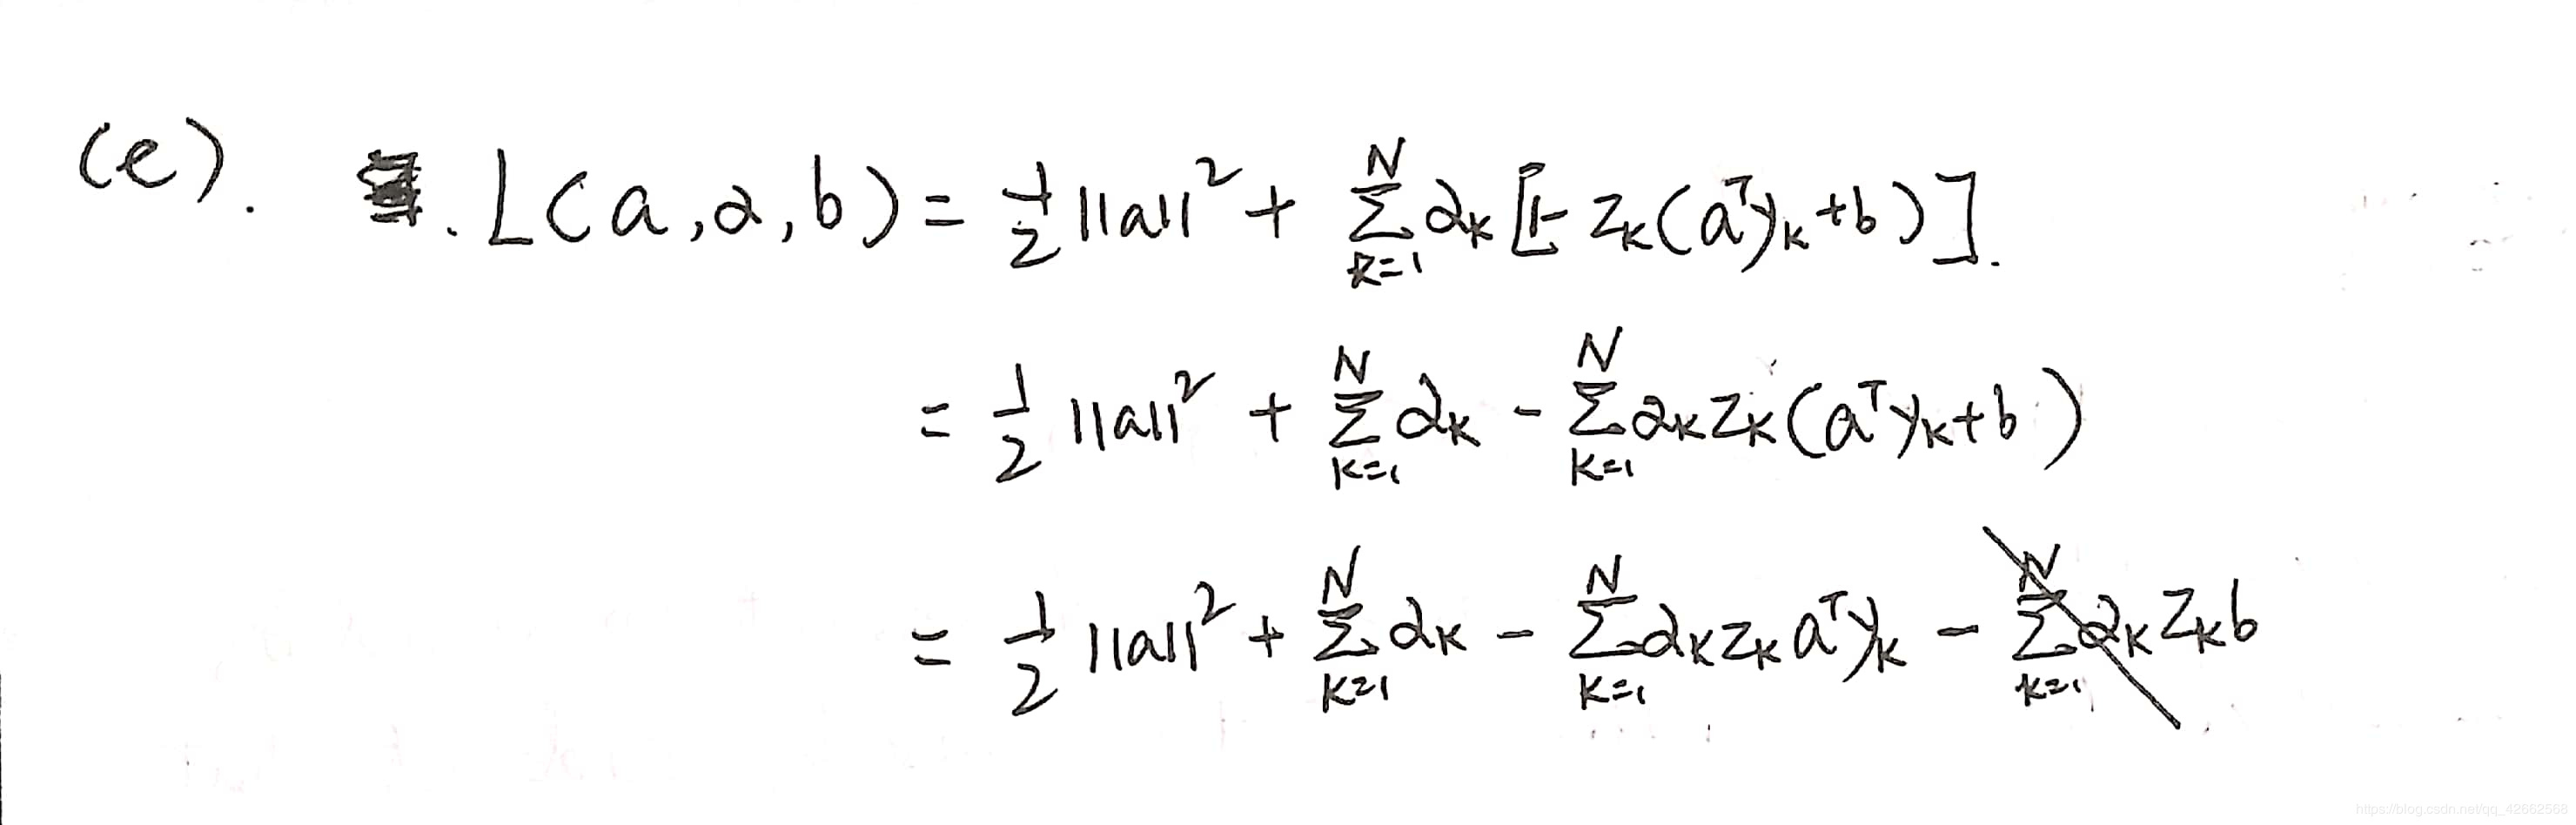 (e). . L(a,α,b) = 1/2 ||a||² + Σ_{k=1}^{N} α_k [1 - z_k(a^T y_k + b)].
= 1/2 ||a||² + Σ_{k=1}^{N} α_k - Σ_{k=1}^{N} α_k z_k (a^T y_k + b)
= 1/2 ||a||² + Σ_{k=1}^{N} α_k - Σ_{k=1}^{N} α_k z_k a^T y_k - Σ_{k=1}^{N} α_k z_k b
https://blog.csdn.net/qq_42662568